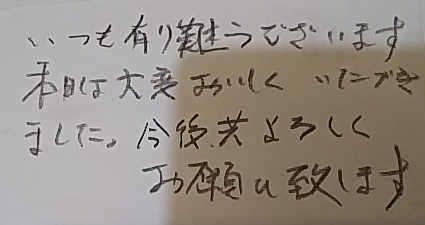 いつも有り難うございます
本日は大変おいしくいただき
ました。今後共よろしく
お願い致します